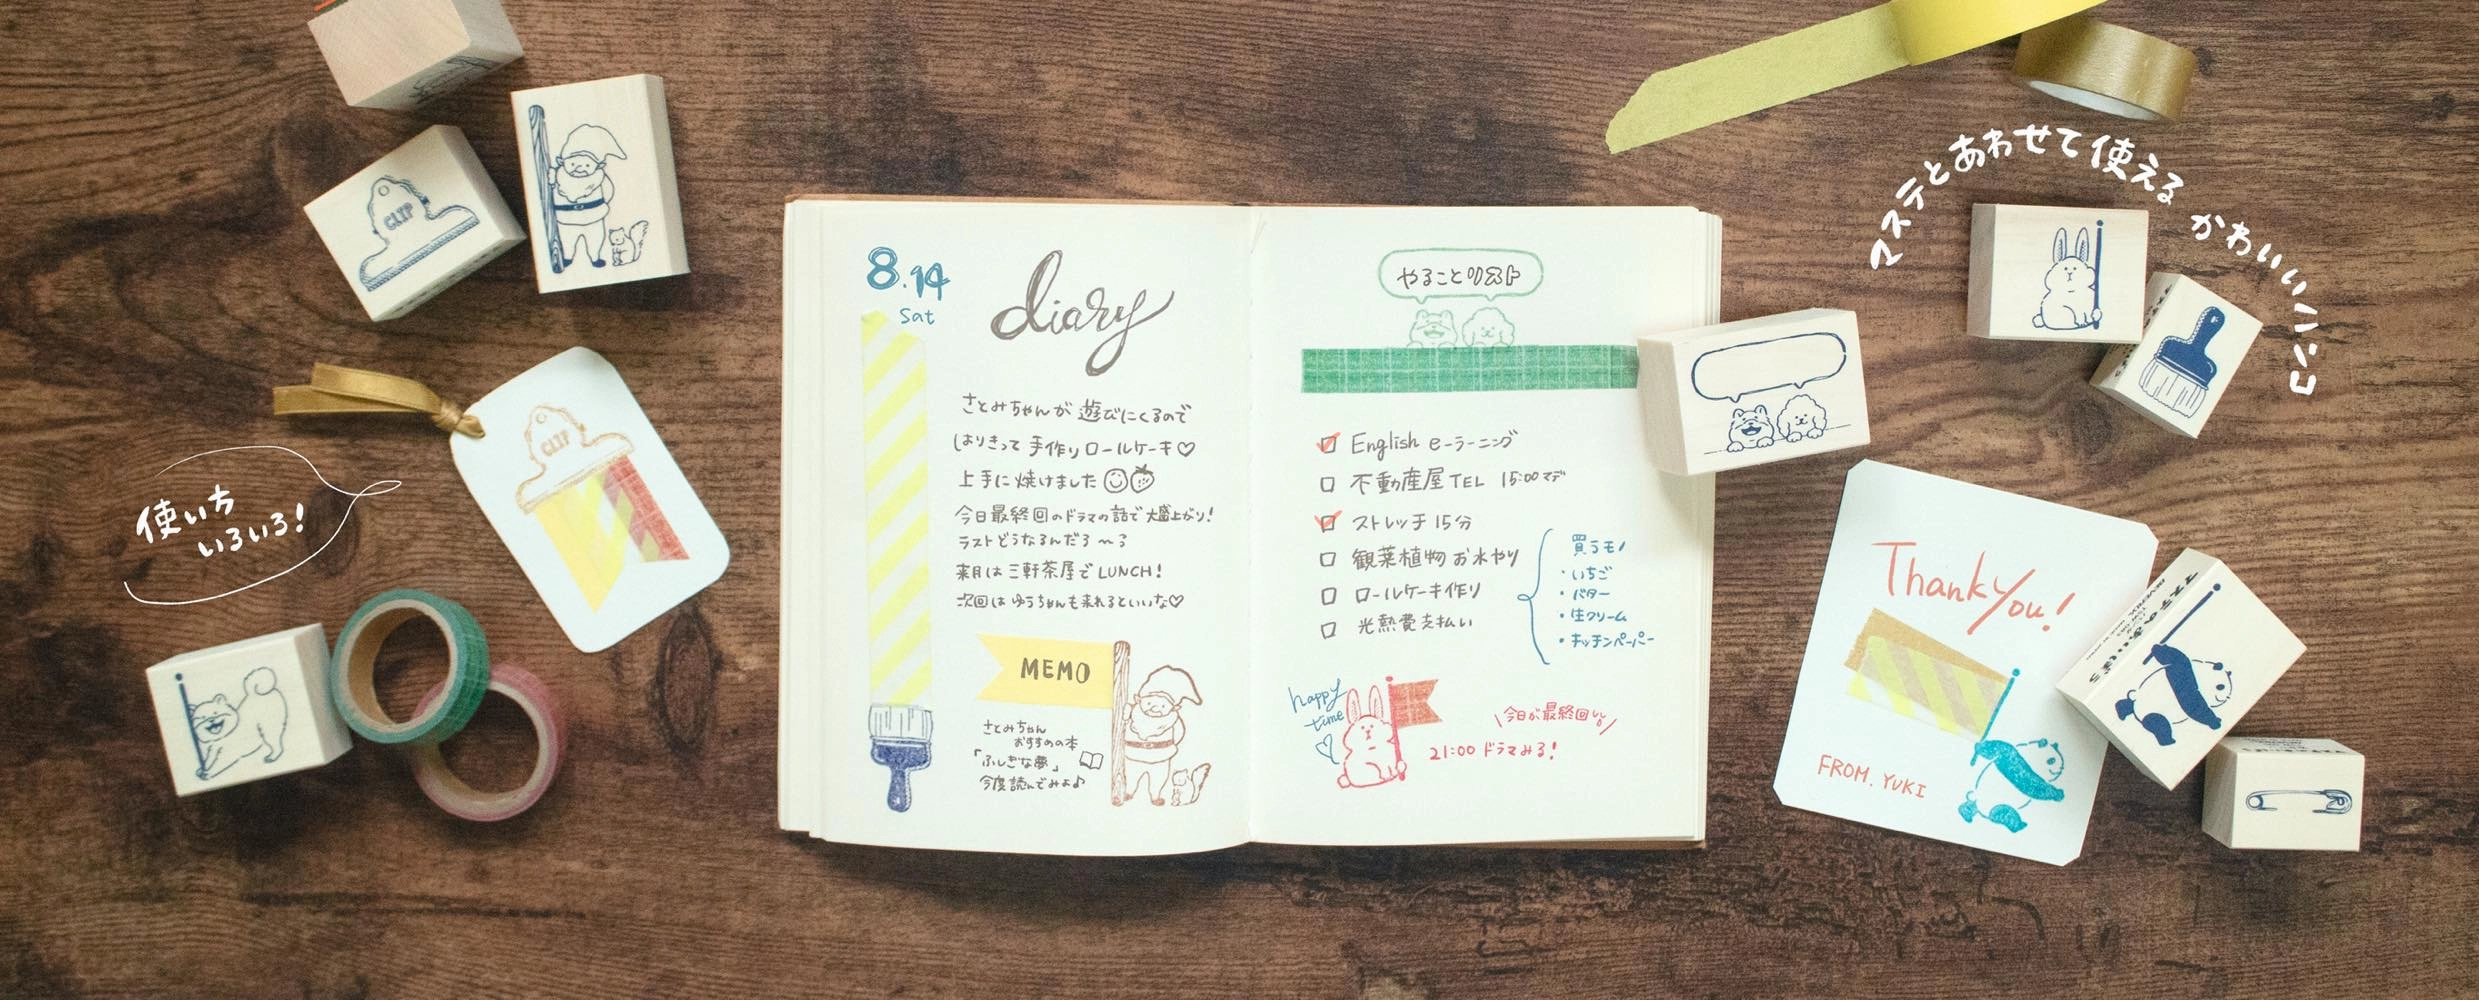 使いち
いろいろ!
CLIP
CLIP
8.14
Sat
diary
さとみちゃんが遊びにくるので
はりきって手作りロールケーキ♡
上手に焼けました
今日最終回のドラマの話で大盛上がり!
ラストどうなるんだろ〜ろ
来月は三軒茶屋でLUNCH!
次回はゆうちゃんも来れるといいな♡
MEMO
さとみちゃん
おすすめの本
「ふしぎな夢」
今度読んでみよ♪
やることリスト
English e-ラーニング
不動産屋TEL 15:00マデ
ストレッチ15分
観葉植物お水やり
ロールケーキ作り
光熱費支払い
買うモノ
・いちご
・バター
・生クリーム
・キッチンペーパー
happy
time
♡
\今日が最終回/
21:00 ドラマみる!
マステとあわせて使える かわいいハンコ
Thank You!
FROM. YUKI